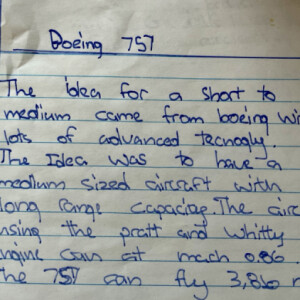 Boeing 757
The idea for a short to
medium came from boeing wi
lots of advanced tecnogly.
The Idea was to have a
medium sized aircraft with
long range capacity. The airc
using the pratt and Whitty
engine can at mach 0.86.
the 757 can fly 3,860 n